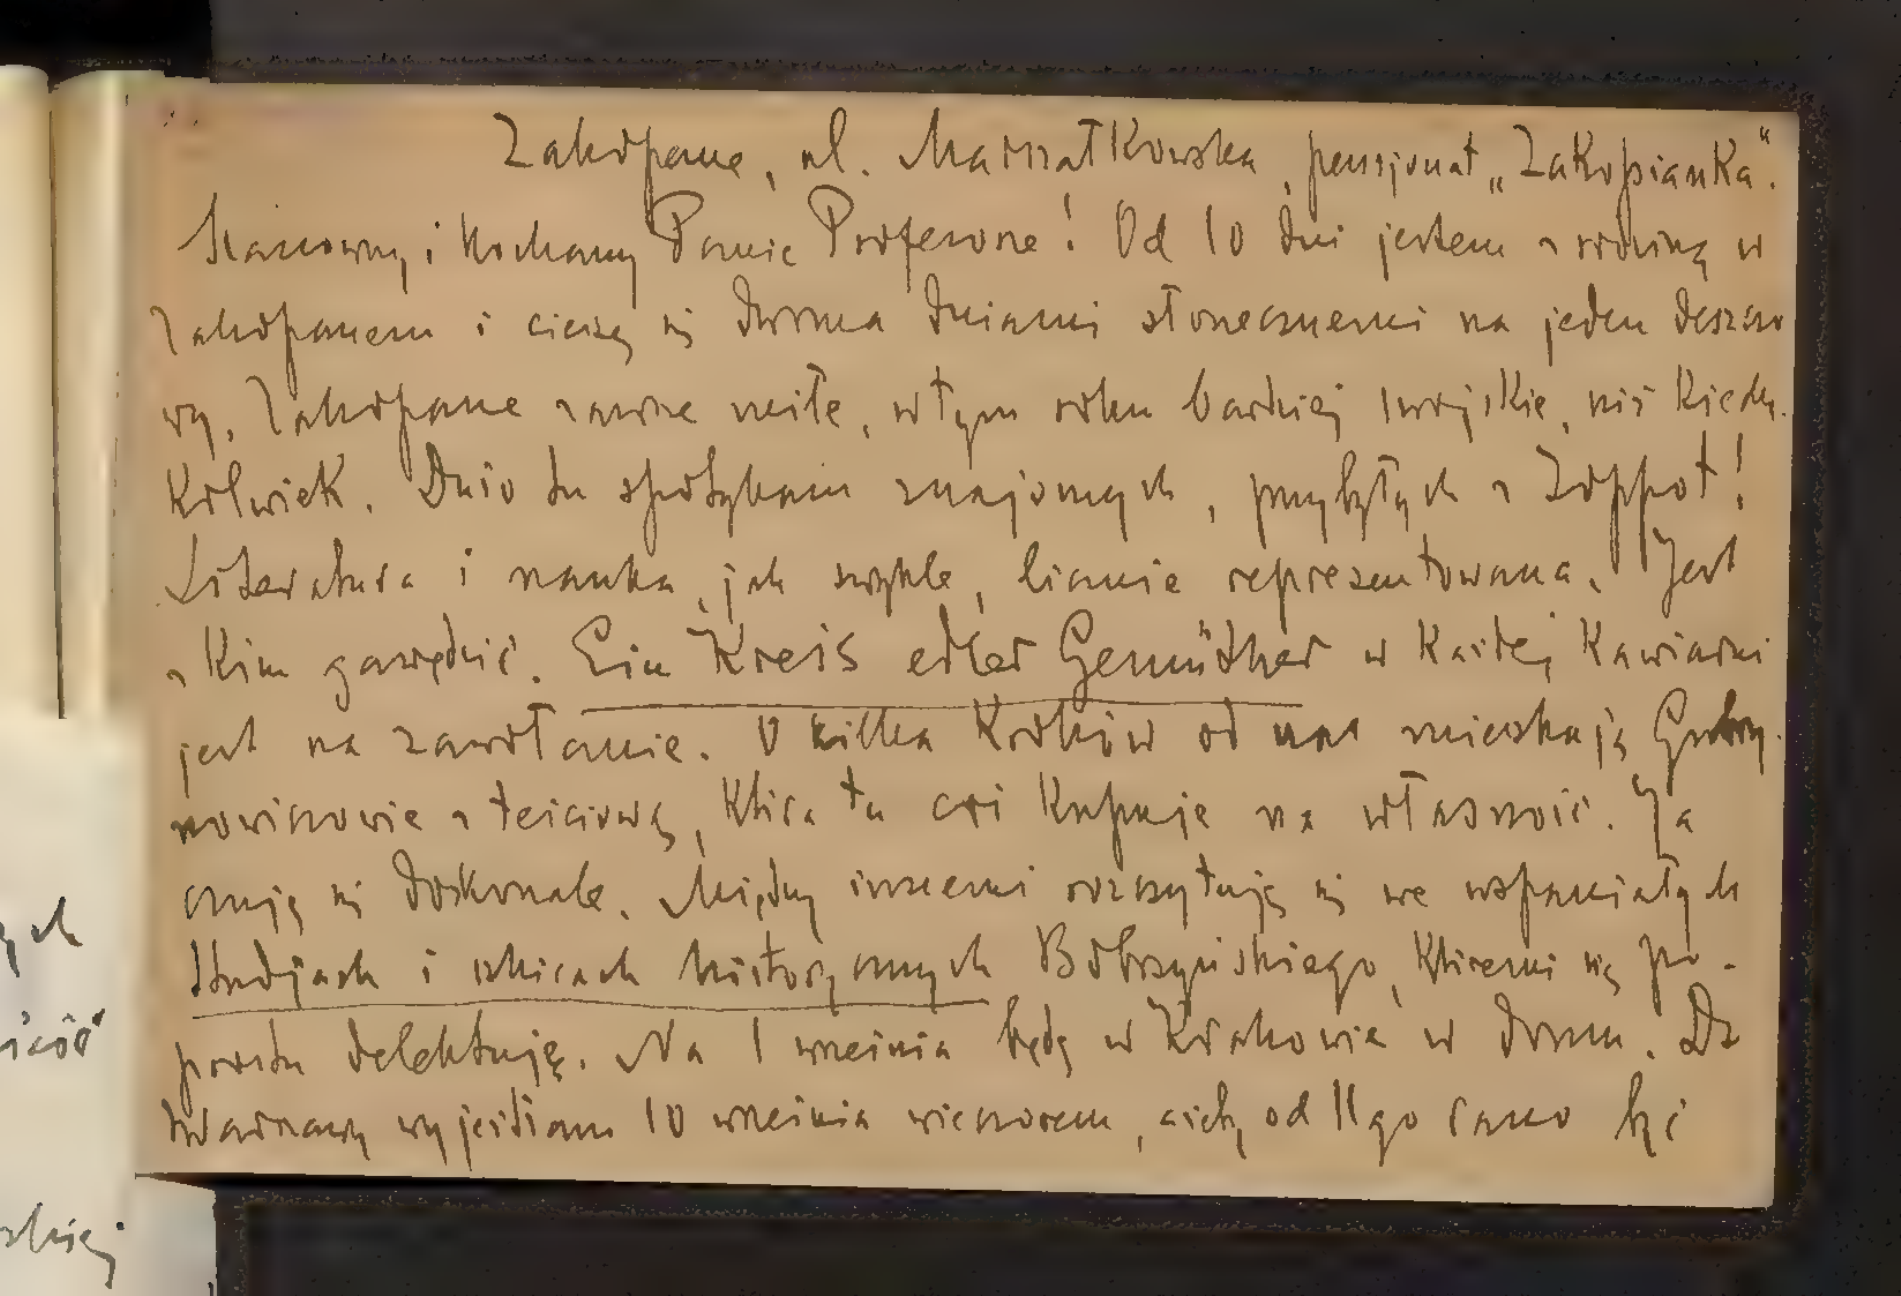 Zakopane, ul. Marszałkowska, pensjonat „Zakopianka".
Szanowny i Kochany Panie Profesorze! Od 10 dni jestem z rodziną w
Zakopanem i cieszę się dwoma dniami słonecznemi na jeden deszczo
wy. Zakopane zawsze miłe, w tym roku bardziej swojskie, niż kiedy-
kolwiek. Dużo tu spotykam znajomych, przybyłych z Zoppot!
Literatura i nauka, jak zwykle, licznie reprezentowana. Jest
z kim gawędzić. Ein Kreis edler Gemüther w każdej kawiarni
jest na zawołanie. O kilka kroków od nas mieszkają Gubry-
nowiczowie z teściową, która tu coś kupuje na własność. Ja
czuję się doskonale. Między innemi rozczytuję się we wspaniałych
Studjach i szkicach historycznych Bobrzyńskiego, któremi się po-
prostu delektuję. Na 1 września będę w Krakowie w domu. Do
Warszawy wyjeżdżam 10 września wieczorem, ażeby od 11go rano być
ych
skiej